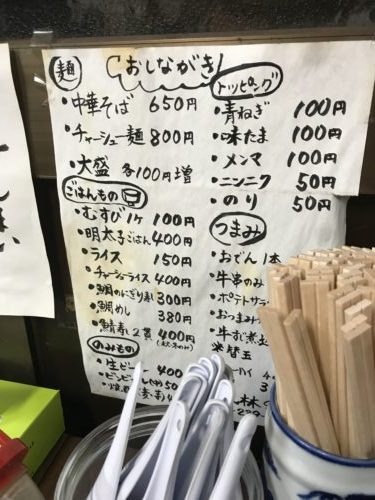 おしながき
麺
・中華そば 650円
・チャーシュー麺 800円
・大盛 各100円増
ごはんもの
・むすび1ケ 100円
・明太子ごはん 400円
・ライス 150円
・チャーシューライス 400円
・鯛のにぎり 300円
・鯛めし 380円
・鯖寿し2貫 400円
のみもの
・生ビ 400
トッピング
・青ねぎ 100円
・味たま 100円
・メンマ 100円
・ニンニク 50円
・のり 50円
つまみ
・おでん 1本
・牛串のみ
・ポテトサラ
・おつまみ
・牛すじ煮
替玉